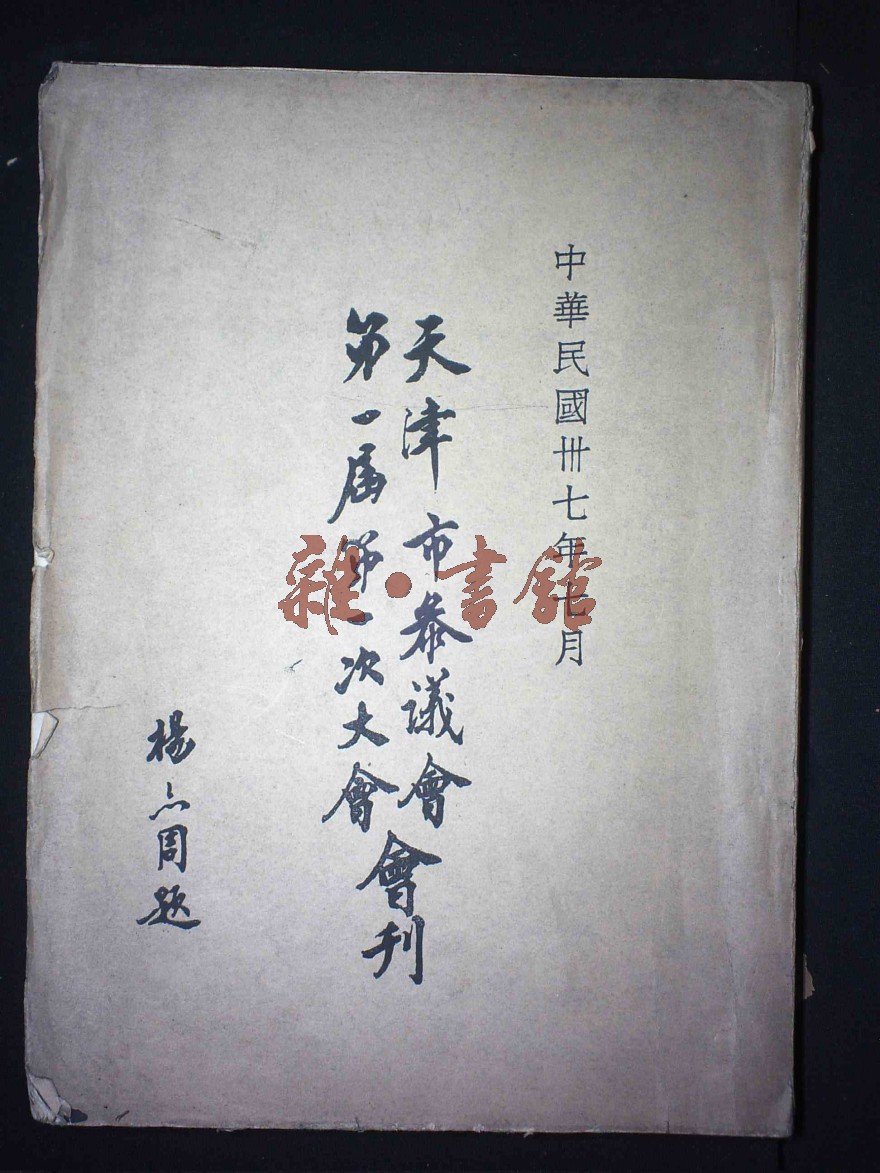 中華民國卅七年七月
天津市參議會
第一屆第一次大會
會刊
楊亦周題
雜·書館